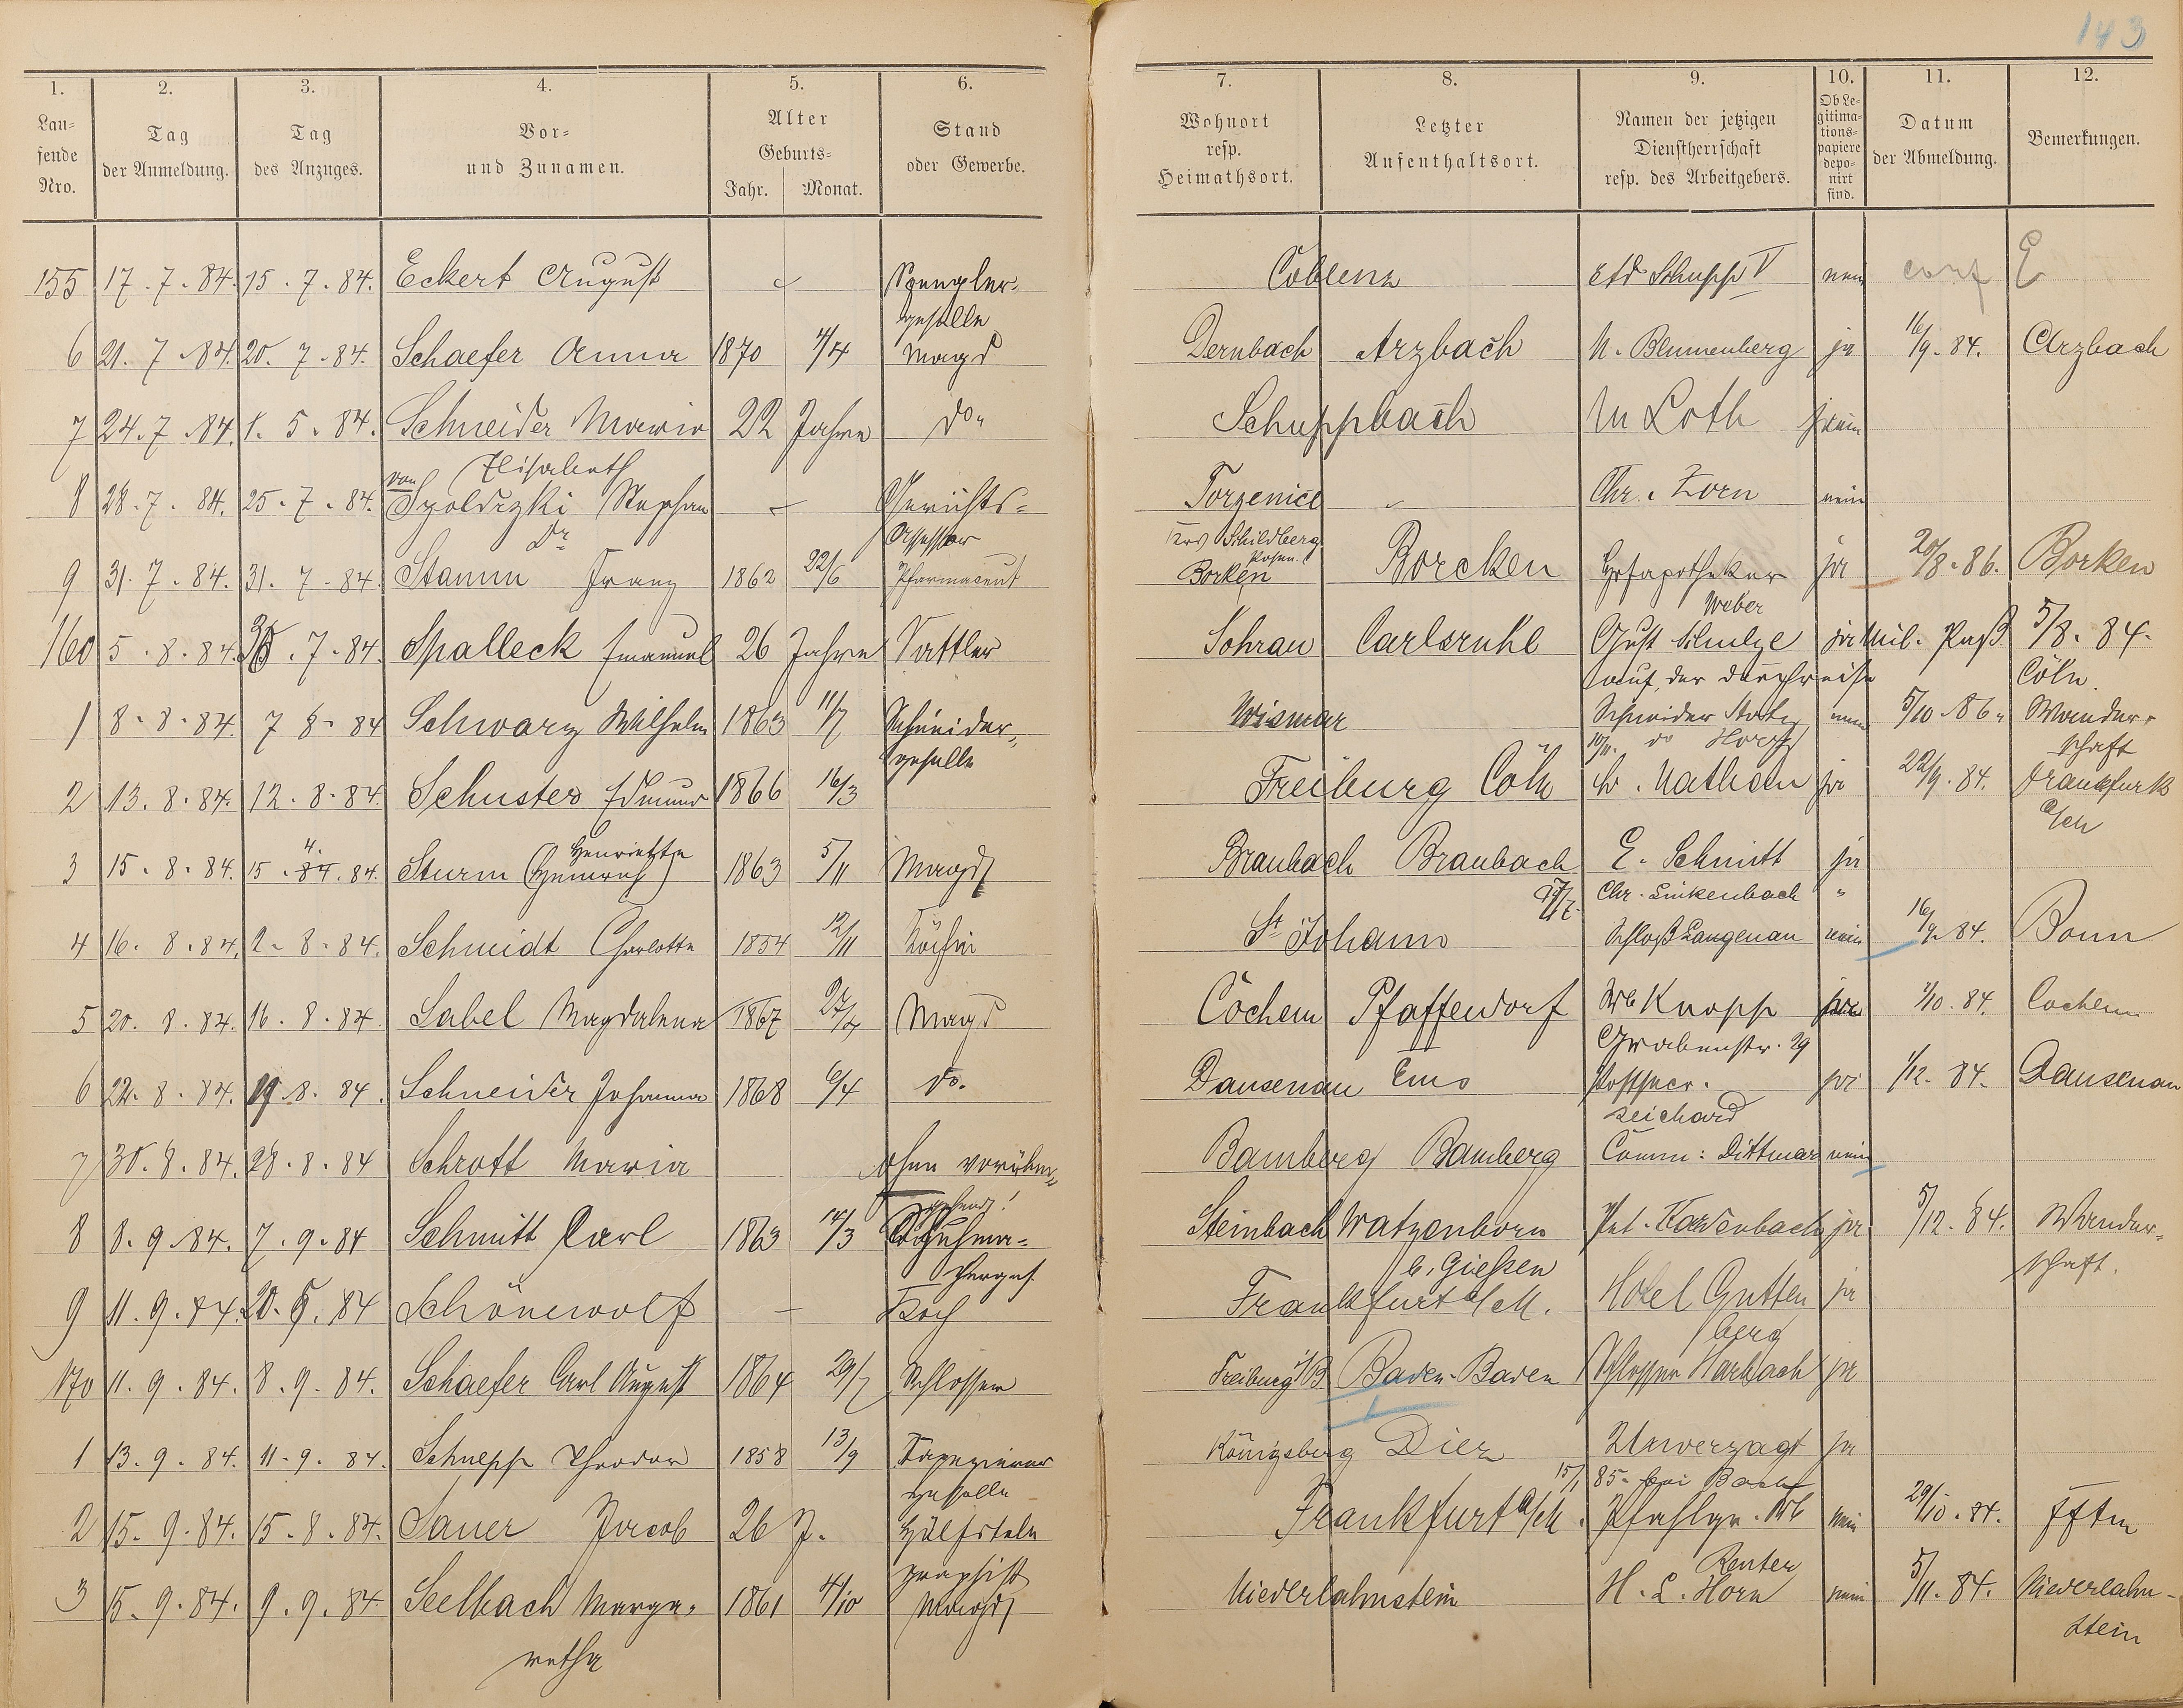 143
1. 2. 3. 4. 5. 6. 7. 8. 9. 10. 11. 12.
Lau-
fende
Nro.
Tag
der Anmeldung.
Tag
des Anzuges.
Vor-
und Zunamen.
Alter
Geburts-
Jahr. Monat.
Stand
oder Gewerbe.
Wohnort
resp.
Heimathsort.
Letzter
Aufenthaltsort.
Namen der jetzigen
Dienstherrschaft
resp. des Arbeitgebers.
Ob Le-
gitima-
tions-
papiere
depo-
nirt
sind.
Datum
der Abmeldung.
Bemerkungen.
155 17. 7. 84. 15. 7. 84. Eckert August Spengler- Coblenz Schupp V nein E
geselle
6 21. 7. 84. 20. 7. 84. Schaefer Anna 1870 4/4 Magd Dernbach Arzbach M. Blumenberg ja 16/9. 84. Arzbach
7 24. 7. 84. 1. 5. 84. Schneider Maria 22 Jahre do. Schuppbach M Loth nein
Elisabeth
8 28. 7. 84. 25. 7. 84. von Stephan - Gerichts- Chr. Zorn nein
Dr Assessor Krs Schildberg
Posen.
9 31. 7. 84. 31. 7. 84. Stamm Franz 1862 22/6 Pharmaceut Borken Borcken Hofapotheker ja 20/8. 86. Borken
Weber
160 5. 8. 84. 7. 84. Spalleck Emanuel 26 Jahre Sattler Sohrau Carlsruhe Gust Schulze ja Mil. Paß 5/8. 84.
auf der Durchreise Cöln.
1 8. 8. 84. 7 8. 84 Schwarz Wilhelm 1863 11/7 Schneider- Wismar Schneider nein 5/10. 86. Wander-
geselle do schaft
2 13. 8. 84. 12. 8. 84. Schuster Edmund 1866 16/3 Freiburg Cöln Nathan ja 22/9. 84. Frankfurt
a/M
Henriette
3 15. 8. 84. 15. 84. Sturm 1863 5/11 Magd Braubach Braubach E. Schmitt ja
Chr. Linkenbach "
4 16. 8. 84. 2. 8. 84. Schmidt Charlotte 1854 12/11 Köchin St Johann Schloß Langenau nein 16/9. 84. Bonn
5 20. 8. 84. 16. 8. 84. Sabel Magdalena 1867 Magd Cochem Pfaffendorf Wb Knopp 1/10. 84. Cochem
Grabenstr. 29
6 22. 8. 84. 19. 8. 84. Schneider Johanna 1868 6/4 do. Dausenau Ems Postsecr. ja 1/12. 84. Dausenau
Reichard
7 30. 8. 84. 28. 8. 84 Schrott Maria ohne vorüber- Bamberg Bamberg Comm: Dittmar nein
gehend!
8 8. 9. 84. 7. 9. 84 Schmitt Carl 1863 14/3 Schuhma- Steinbach Watzenborn ja 5/12. 84. Wander-
cherges. b. Gießen schaft.
9 11. 9. 84. 84 Schönewolf - Koch Frankfurt a/M. Hotel Gutten ja
berg
170 11. 9. 84. 8. 9. 84. Schaefer Carl August 1864 29/7 Schlosser Freiburg i/B Baden-Baden Schlosser Harbach ja
1 13. 9. 84. 11. 9. 84. Schnepp Theodor 1858 13/9 Tapezierer Königsberg Diez Unverzagt ja
geselle 15/1 85. bei Bach
2 15. 9. 84. 15. 8. 84. Sauer Jacob 26 J. Hülfstele Frankfurt a/M. Pfahlgr. Wb nein 29/10. 84.
graphist Reuter
3 15. 9. 84. 9. 9. 84 Seelbach Marga- 1861 4/10 Magd Niederlahnstein H. L. Horn nein 5/11. 84. Niederlahn-
retha stein